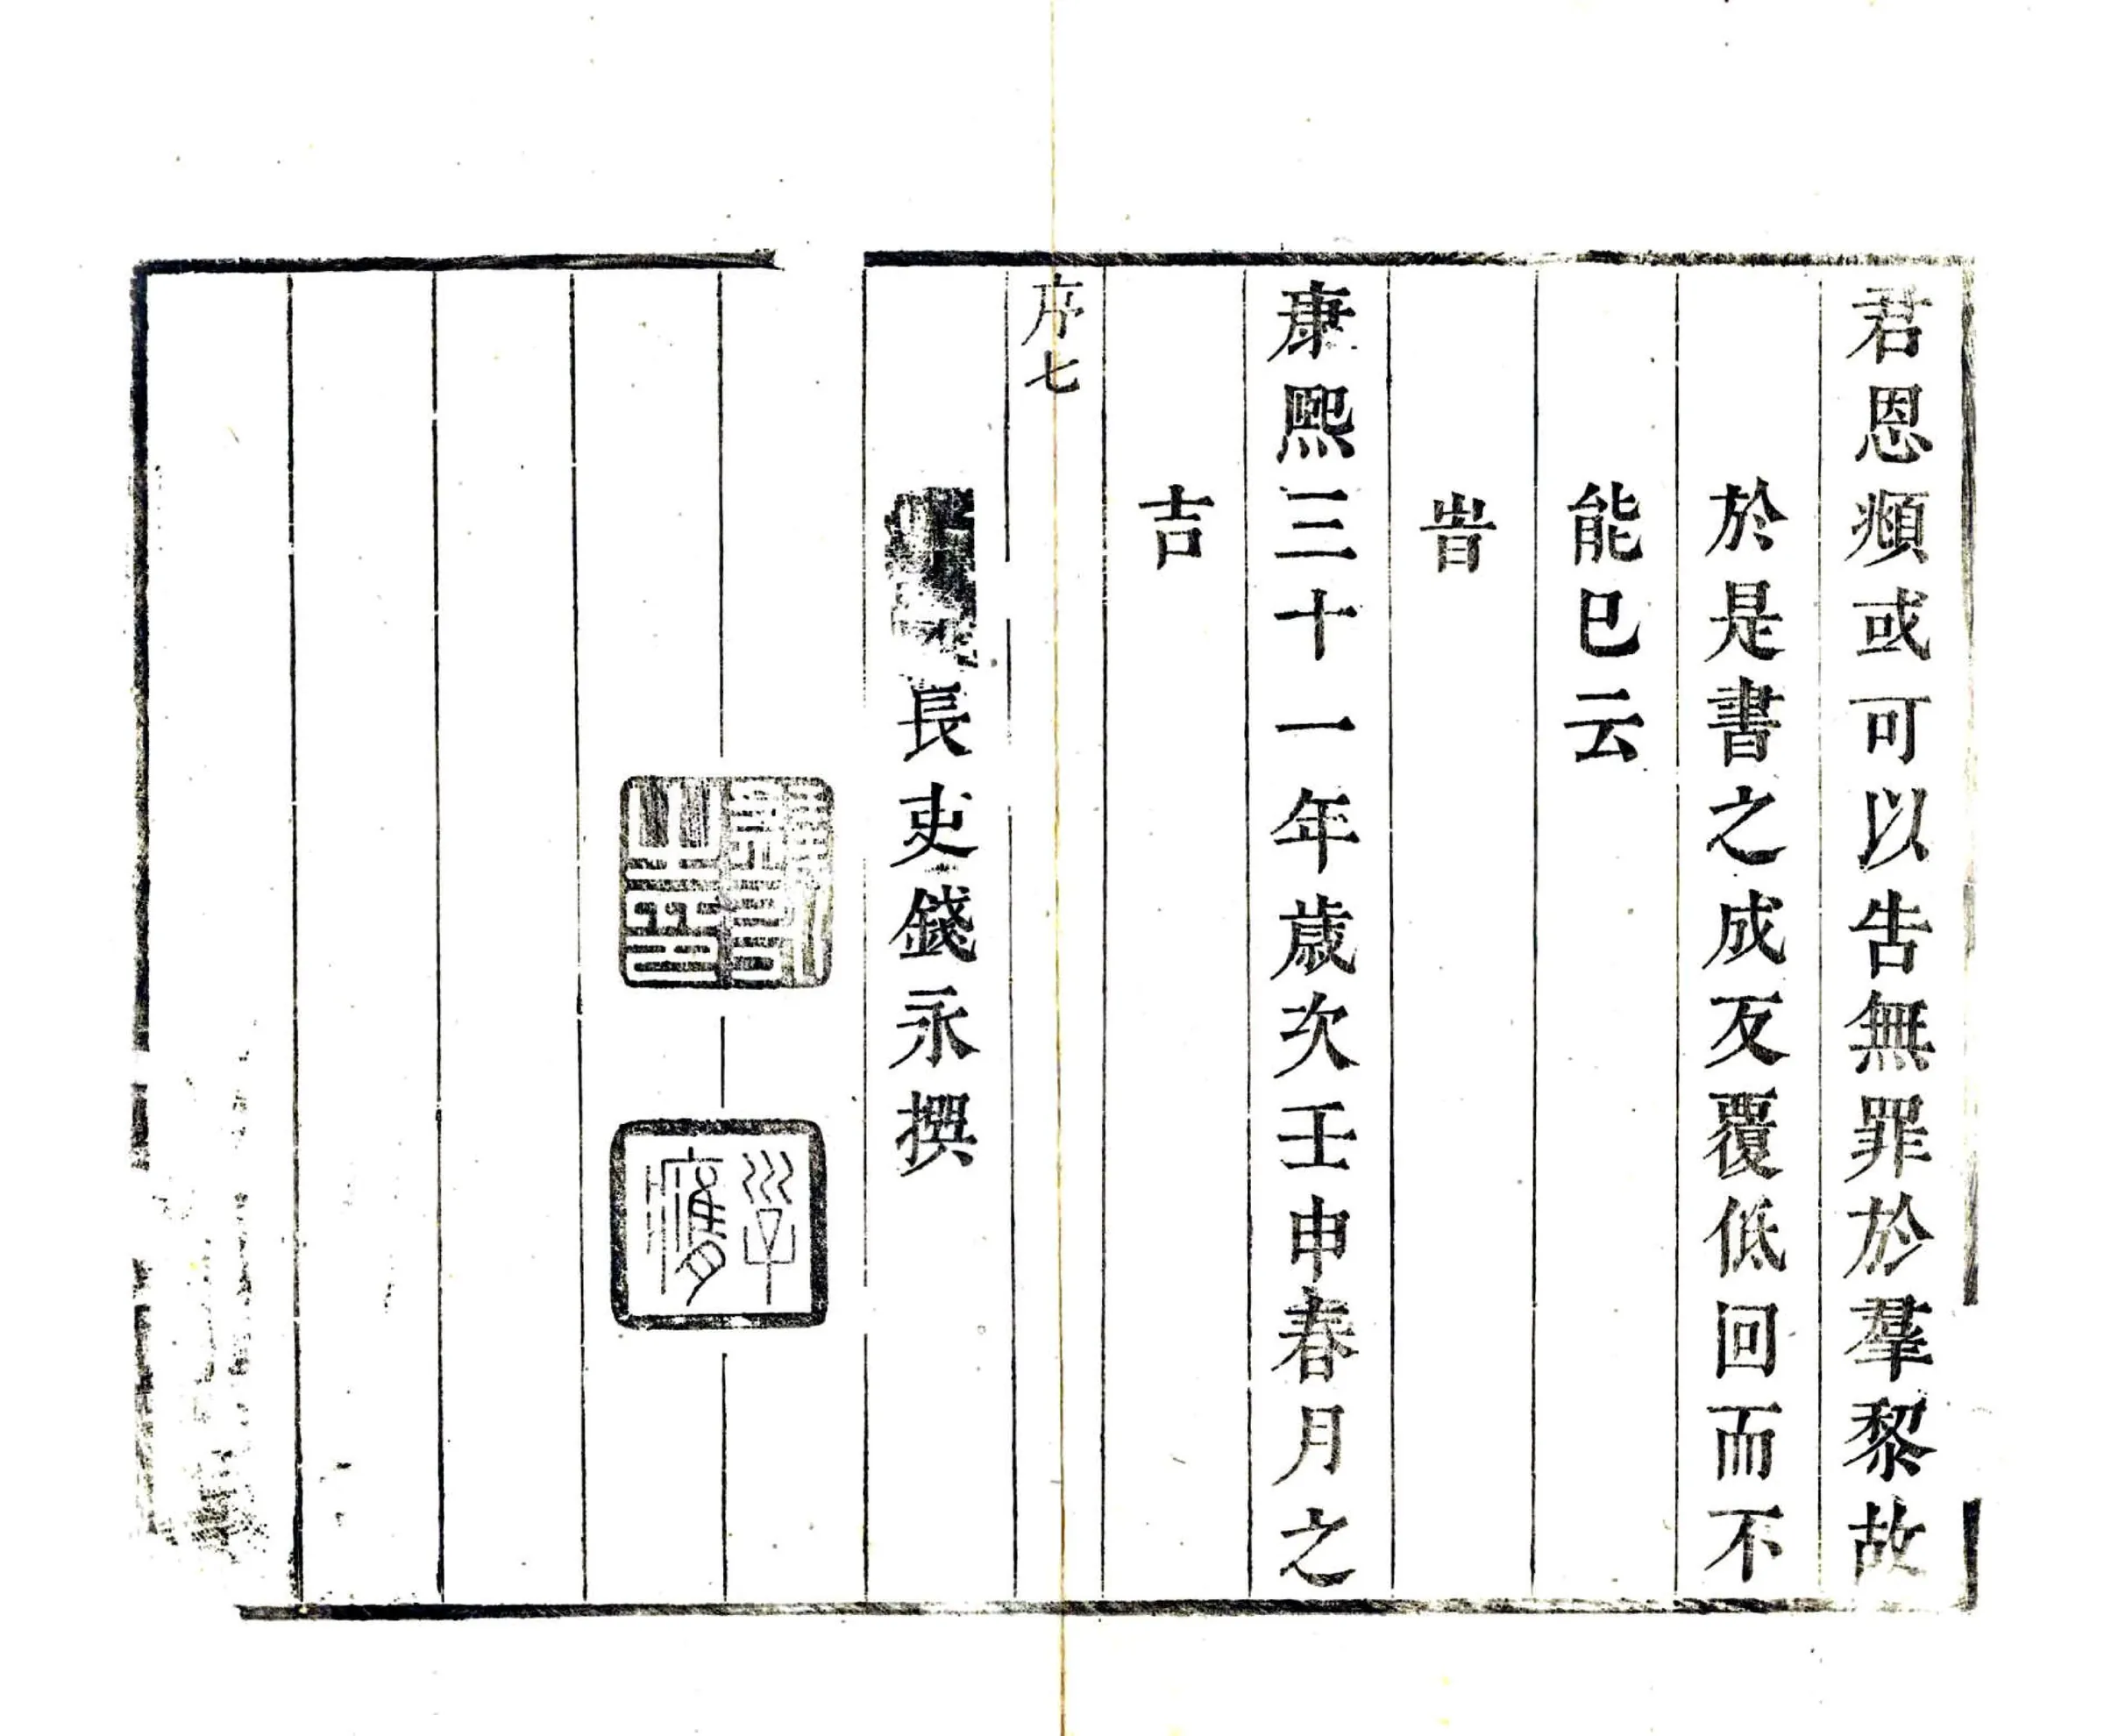 君恩頫或可以告無罪於羣黎故
於是書之成反覆低回而不
能已云
旹
康熙三十一年歲次壬申春月之
吉
序七
長吏錢永撰
錢永之章